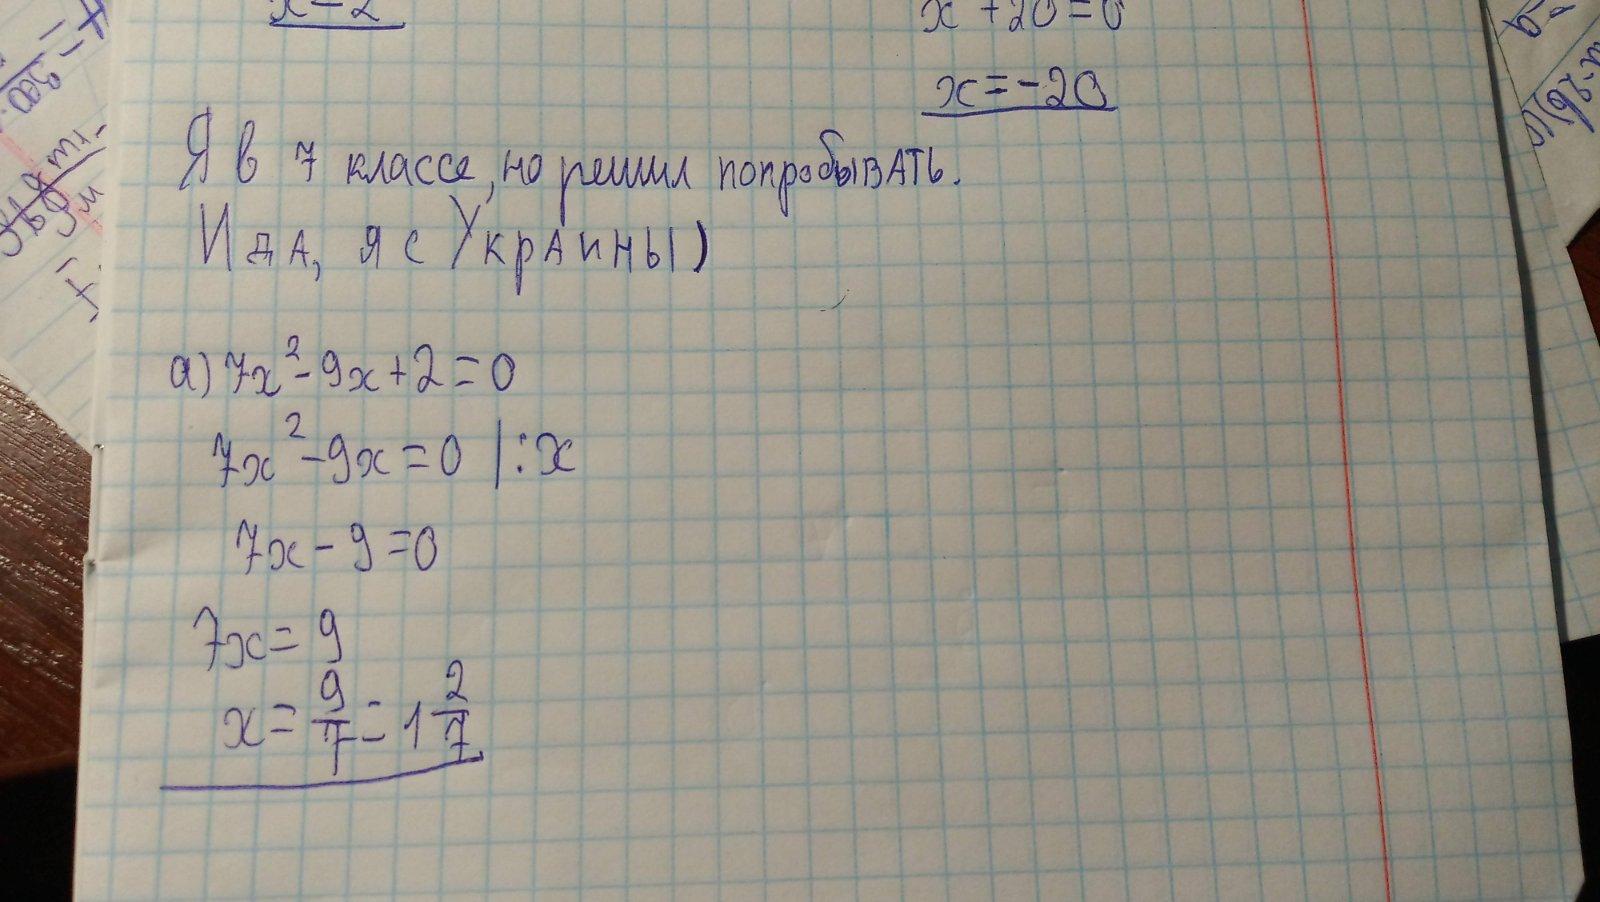 x=2
x+20=0
x=-20
Я в 7 классе, но решил попробывать.
И да, я с Украины)
а) 7x²-9x+2=0
7x²-9x=0 |:x
7x-9=0
7x=9
x=9/7=1 2/7